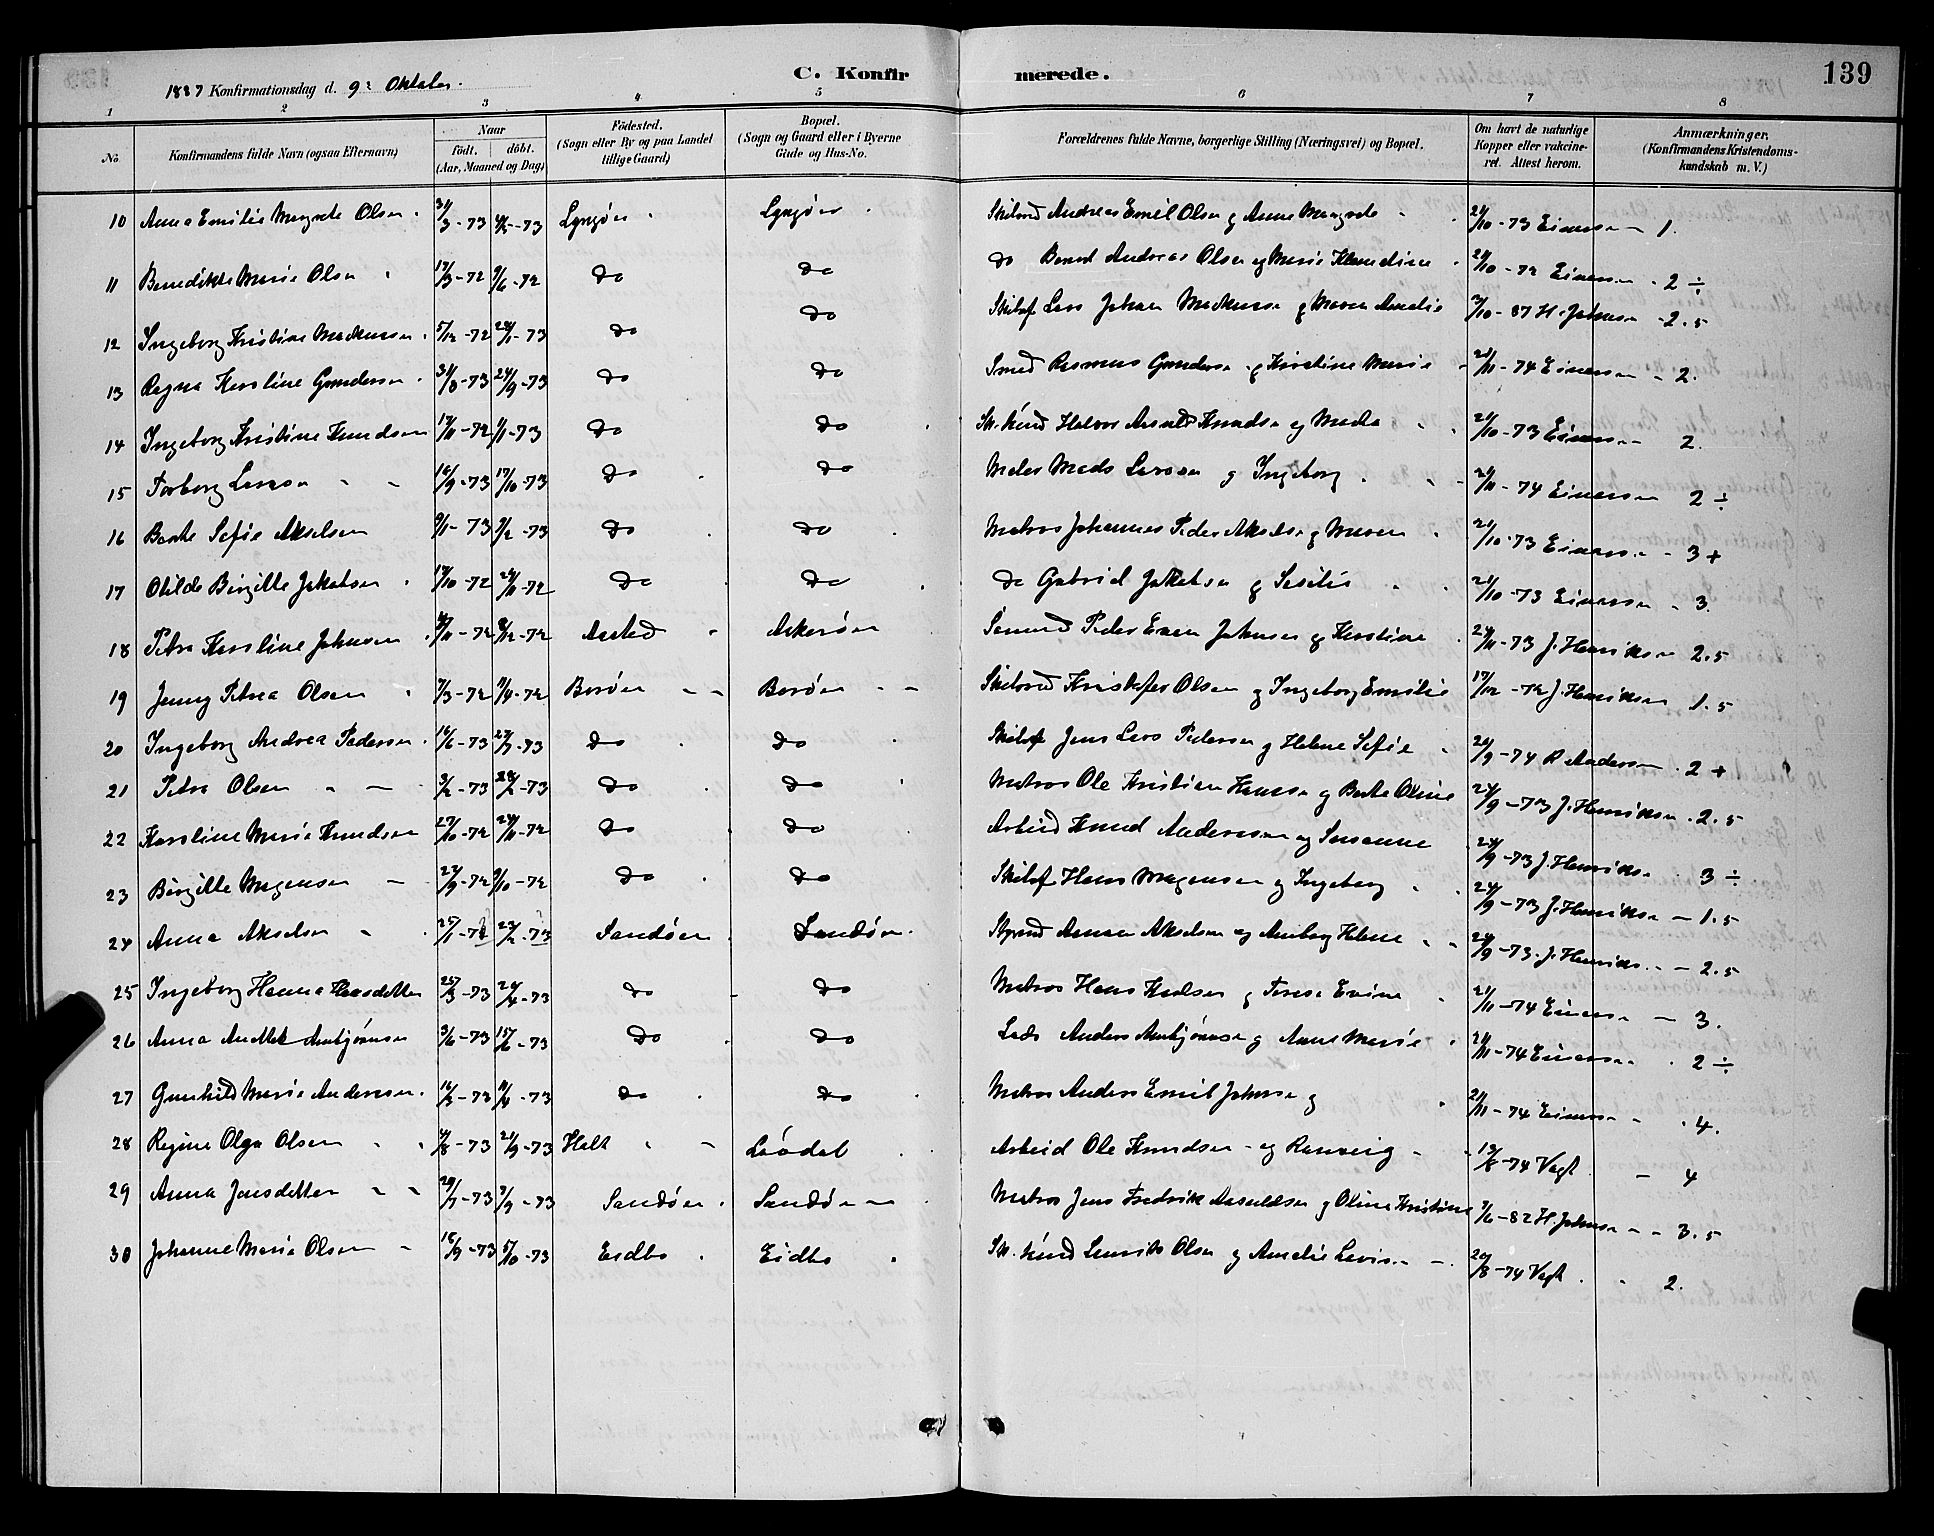 139
C. Konfirmerede.
1887 Konfirmationsdag d. 9de Oktober.
1 2 3 4 5 6 7 8
No. Konfirmandens fulde Navn (ogsaa Efternavn) Naar födt. döbt. (Aar, Maaned og Dag) Födested. (Sogn eller By og paa Landet tillige Gaard) Bopæl. (Sogn og Gaard eller i Byerne Gade og Hus-No. Forældrenes fulde Navne, borgerlige Stilling (Næringsvei) og Bopæl. Om havt de naturlige Kopper eller vakcineret. Attest herom. Anmærkninger. (Konfirmandens Kristendomskundskab m. V.)
10 Anna Emilie Margrete Olsen 31/3-73 -73 Lyngøer Lyngøer Andreas Emil Olsen og Anne Margrete 21/10-73 Einersen 1.
11 Benedikte Marie Olsen 17/3-72 9/6-72 do do do Bernt Andreas Olsen og Marie Klaudine 21/10-72 Einersen 2 ÷
12 Ingeborg Kristine Markussen 5/12-72 28/1-73 do do Skibsf Lars Johan Markussen og Maren Amalie 3/10-87 H. Johnsen 2.5
13 Regna Karoline Gundersen 31/8-73 24/9-73 do do Smed Rasmus Gundersen og Kirstine Marie 21/11-74 Einersen 2.
14 Ingeborg Kristine Knudsen 17/11-72 1/1-73 do do Halvor Knudsen og 21/10-73 Einersen 2.
15 Torborg Larsen 16/9-73 17/10-73 do do Mads Larsen og Ingeborg 21/11-74 Einersen 2 ÷
16 Berte Sofie Akselsen 9/1-73 9/2-73 do do Matros Johannes Peder Akselsen og Maren 21/10-73 Einersen 3 +
17 Otilde Birgitte Jakobsen 17/10-72 24/11-72 do do do Gabriel Jakobsen og Sesilie 21/10-73 Einersen 3.
18 Petra Karoline Johnsen /11-72 8/12-72 Askerøen Peder Johnsen og Kirstine 24/11-73 J. Henriksen 2.5
19 Jenny Petrea Olsen 7/3-72 7/4-72 Borøen Borøen Kristofer Olsen og Ingeborg Emilie 17/12-72 J. Henriksen 1.5
20 Ingeborg Andrea Pedersen 16/6-73 27/7-73 do do Skibsf Jens Lars Pedersen og Helene Sofie 20/9-74 R Andersen 2 +
21 Petra Olsen 3/2-73 28/2-73 do do Matros Ole Kristian Hansen og Berte Oline 24/9-73 J. Henriksen 2.5
22 Karoline Marie Knudsen 27/10-72 24/11-72 do do Arbeid Knud Andersen og Susanne 24/9-73 J. Henriksen 3 ÷
23 Birgitte Mogensen 27/9-72 9/10-72 do do Skibsf Hans Mogensen og Ingeborg 24/9-73 J. Henriksen 1.5
24 Anna Akselsen 25/1-73 22/2-73 Sandøen Sandøen Aanen Akselsen og Anborg Helene 24/9-73 J. Henriksen 2.5
25 Ingeborg Hanna Hansdatter 25/3-73 20/4-73 do do Matros Hans Karlsen og Terese 21/11-74 Einersen 3.
26 Anna Anette Anbjørnsen 3/6-73 15/6-73 do do Lods Anders Anbjørnsen og Anne Marie 21/11-74 Einersen 2 ÷
27 Gunhild Marie Andersen 16/3-73 11/4-73 do do Matros Anders Emil Johnsen og 21/11-74 Einersen 4.
28 Regine Olga Olsen 4/8-73 21/9-73 Holt Løvdal Arbeid Ole Knudsen og Ranveig 13/8-74 Vogt 4
29 Anna Jensdatter 29/7-73 7/9-73 Sandøen Sandøen Matros Jens Fredrik Aanuldsen og Oline Kristine 7/6-82 H. Johnsen 3.5
30 Johanne Marie Olsen 18/9-73 5/10-73 Eidbo Eidbo Olsen og Amalie 20/8-74 Vogt 2.